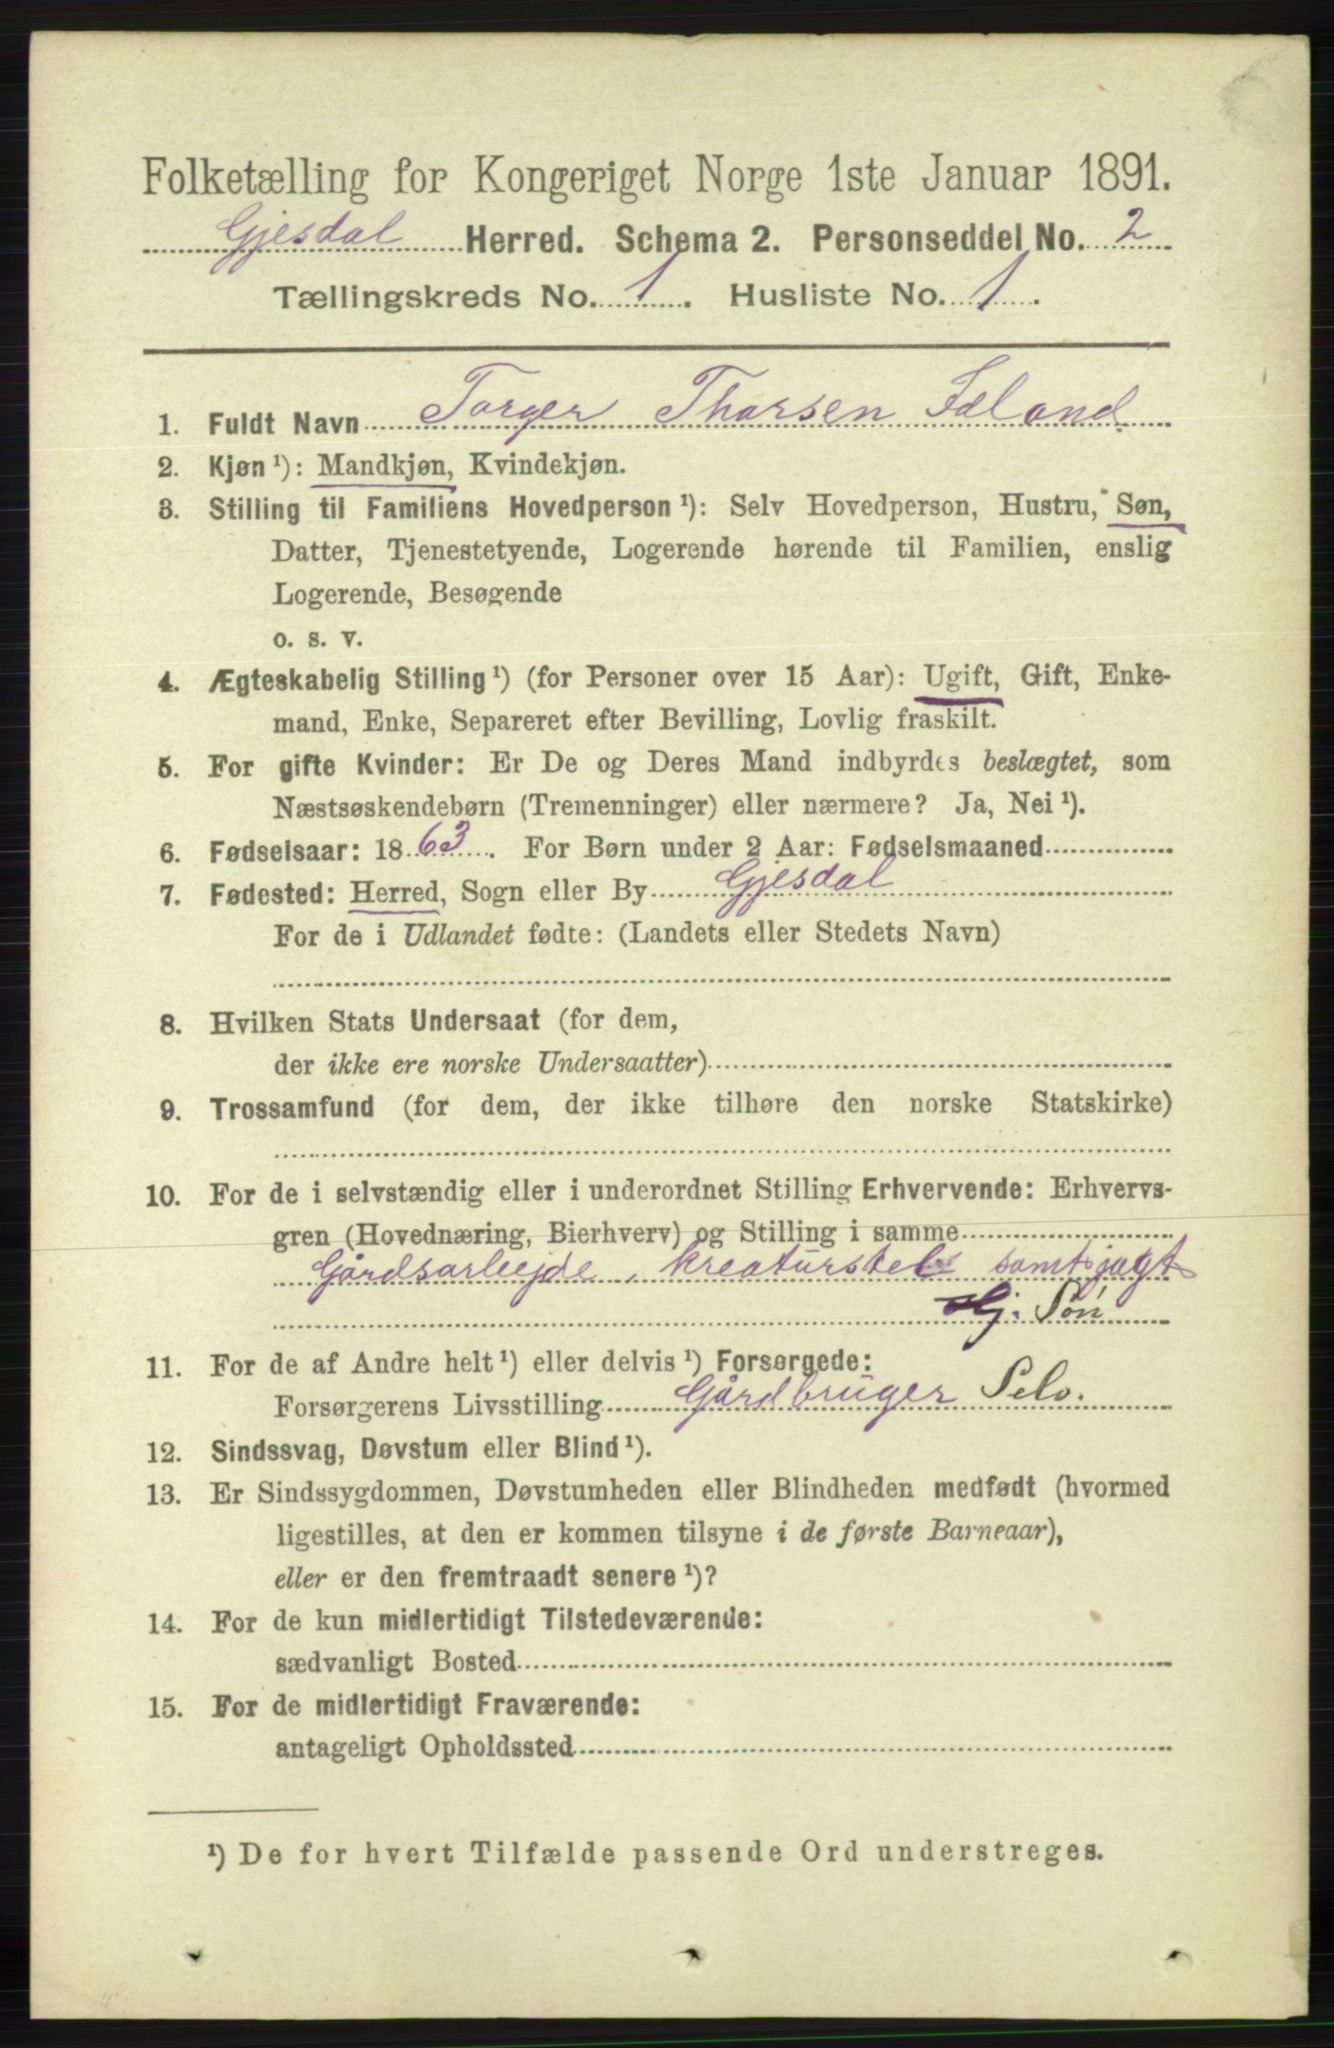 Folketælling for Kongeriget Norge 1ste Januar 1891.
Gjesdal Herred. Schema 2. Personseddel No. 2
Tællingskreds No. 1. Husliste No. 1.
1. Fuldt Navn Torger Thorsen
2. Kjøn ¹): Mandkjøn, Kvindekjøn.
3. Stilling til Familiens Hovedperson ¹): Selv Hovedperson, Hustru, Søn,
Datter, Tjenestetyende, Logerende hørende til Familien, enslig
Logerende, Besøgende
o. s. v.
4. Ægteskabelig Stilling ¹) (for Personer over 15 Aar): Ugift, Gift, Enke-
mand, Enke, Separeret efter Bevilling, Lovlig fraskilt.
5. For gifte Kvinder: Er De og Deres Mand indbyrdes beslægtet, som
Næstsøskendebørn (Tremenninger) eller nærmere? Ja, Nei ¹).
6. Fødselsaar: 1863. For Børn under 2 Aar: Fødselsmaaned
7. Fødested: Herred, Sogn eller By Gjesdal
For de i Udlandet fødte: (Landets eller Stedets Navn)
8. Hvilken Stats Undersaat (for dem,
der ikke ere norske Undersaatter)
9. Trossamfund (for dem, der ikke tilhøre den norske Statskirke)
10. For de i selvstændig eller i underordnet Stilling Erhvervende: Erhvervs-
gren (Hovednæring, Bierhverv) og Stilling i samme
Gårdsarbejde, kreaturstel samt jagt
Gj. Søn
11. For de af Andre helt ¹) eller delvis ¹) Forsørgede:
Forsørgerens Livsstilling Gårdbruger Selv.
12. Sindssvag, Døvstum eller Blind ¹).
13. Er Sindssygdommen, Døvstumheden eller Blindheden medfødt (hvormed
ligestilles, at den er kommen tilsyne i de første Barneaar),
eller er den fremtraadt senere ¹)?
14. For de kun midlertidigt Tilstedeværende:
sædvanligt Bosted
15. For de midlertidigt Fraværende:
antageligt Opholdssted
¹) De for hvert Tilfælde passende Ord understreges.